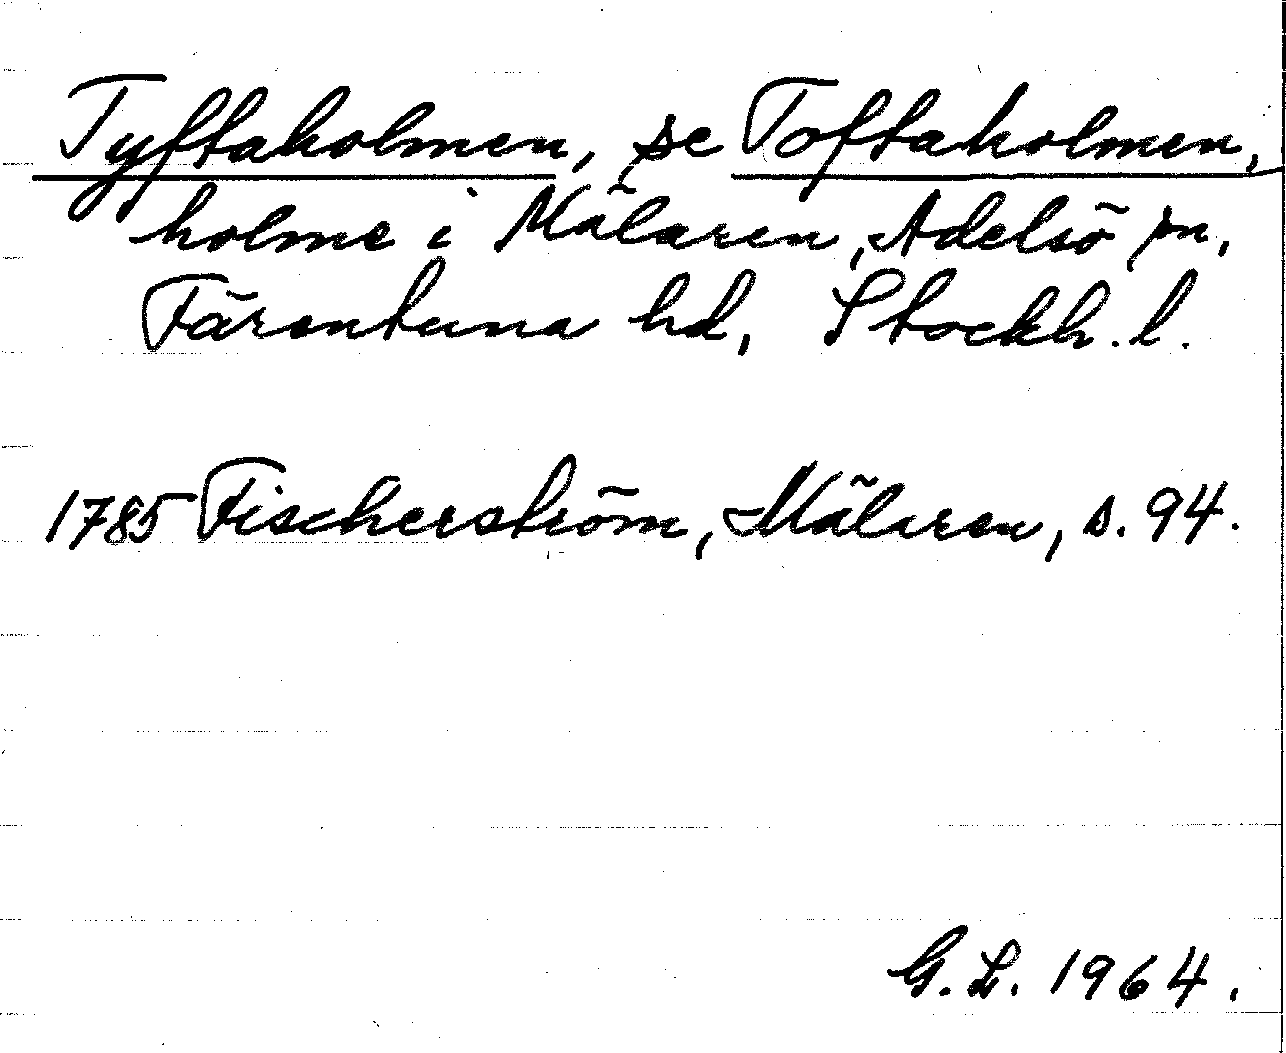 Tyftaholmen, se Toftaholmen,
holme i Mälaren, Adelsö sn,
Färentuna hd, Stockh. l.
1785 Fischerström, Mälaren, s. 94.
G. L. 1964.